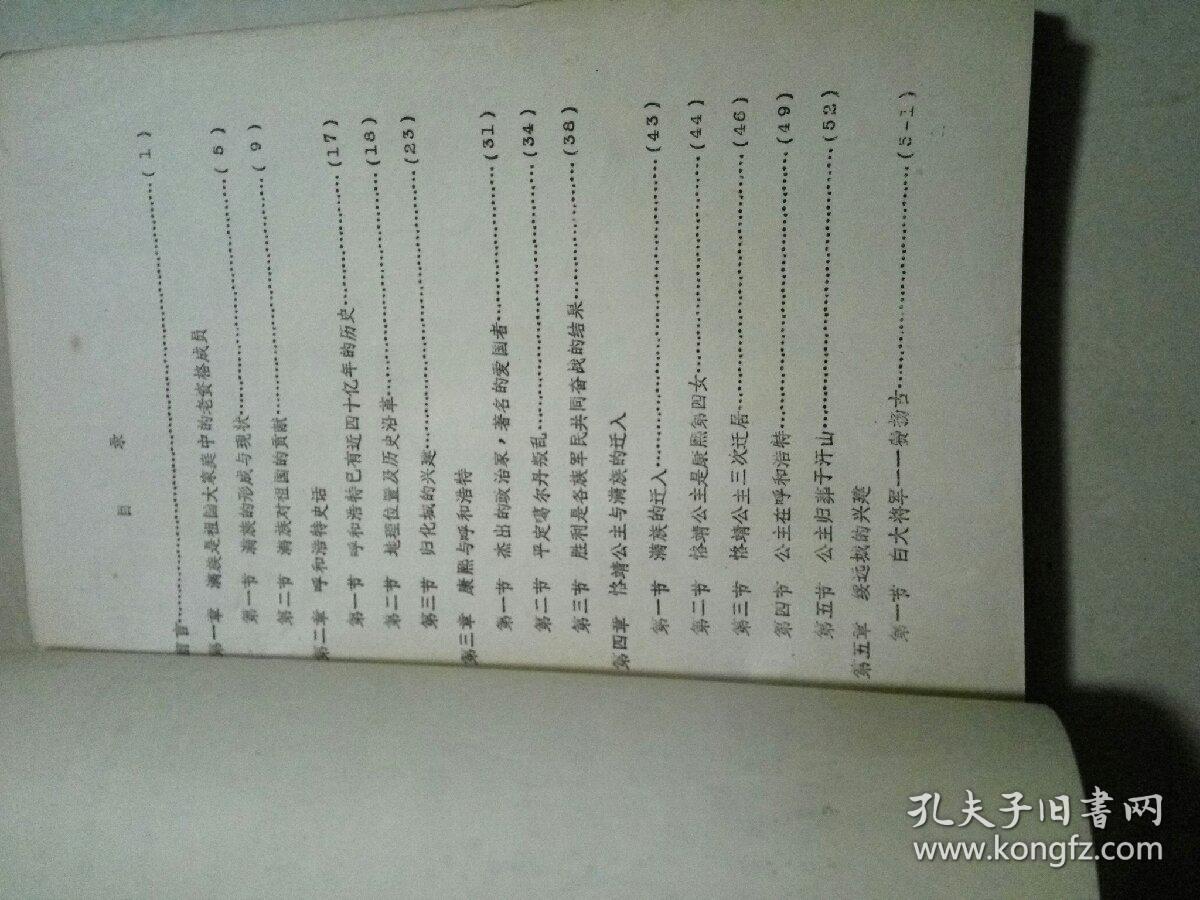 目 录
前言……(1)
第一章 满族是祖国大家庭中的老资格成员
第一节 满族的形成与现状……(5)
第二节 满族对祖国的贡献……(9)
第二章 呼和浩特史话
第一节 呼和浩特已有近四十亿年的历史……(17)
第二节 地理位置及历史沿革……(18)
第三节 归化城的兴建……(23)
第三章 康熙与呼和浩特
第一节 杰出的政治家，著名的爱国者……(31)
第二节 平定噶尔丹叛乱……(34)
第三节 胜利是各族军民共同奋战的结果……(38)
第四章 恪靖公主与满族的迁入
第一节 满族的迁入……(43)
第二节 恪靖公主是康熙第四女……(44)
第三节 恪靖公主三次迁居……(46)
第四节 公主在呼和浩特……(49)
第五节 公主归葬于汗山……(52)
第五章 绥远城的兴建
第一节 白大将军——费扬古……(5-1)
孔夫子旧書网
www.kongfz.com